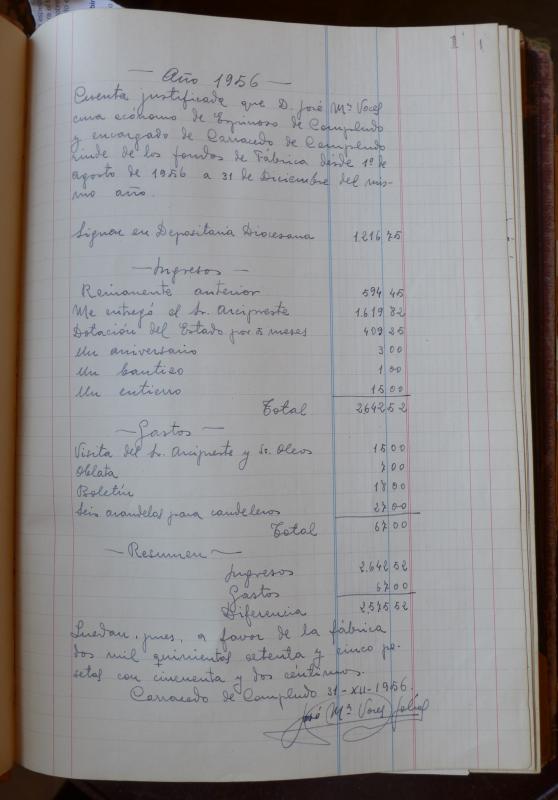 1 1
— Año 1956 —
Cuenta justificada que D. José Mª Voces
cura ecónomo de Espinoso de Compludo
y encargado de Carracedo de Compludo
rinde de los fondos de Fábrica desde 1º de
agosto de 1956 a 31 de Diciembre del mis-
mo año.
Siguen en Depositaria Diocesana 1.216 75
— Ingresos —
Remanente anterior 594 45
Me entregó el Sr. Arcipreste 1.619 82
Dotación del Estado por 5 meses 409 25
Un aniversario 3 00
Un bautizo 1 00
Un entierro 15 00
Total 2642 52
— Gastos —
Visita del Sr. Arcipreste y St. Oleos 15 00
Oblata 7 00
Boletín 18 00
Seis arandelas para candeleros 27 00
Total 67 00
— Resumen —
Ingresos 2.642 52
Gastos 67 00
Diferencia 2.575 52
Quedan, pues, a favor de la fábrica
dos mil quinientas setenta y cinco pe-
setas con cincuenta y dos céntimos.
Carracedo de Compludo 31-XII-1956
José Mª Voces